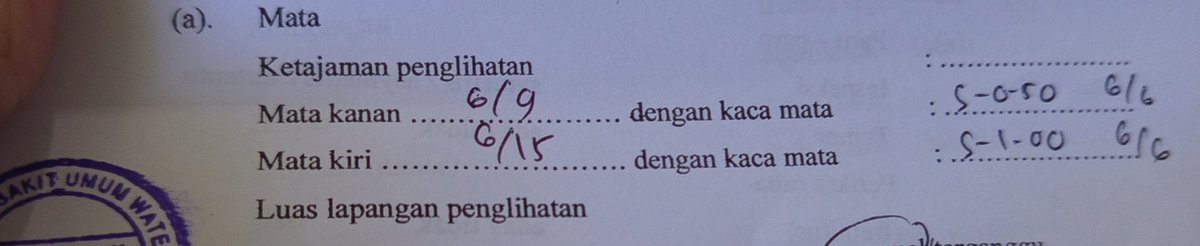 (a). Mata
Ketajaman penglihatan : ..............................
Mata kanan ........6/9........ dengan kaca mata : S-0-50 6/6
Mata kiri ........6/15........ dengan kaca mata : S-1-00 6/6
Luas lapangan penglihatan
SAKIT UMUM WATE